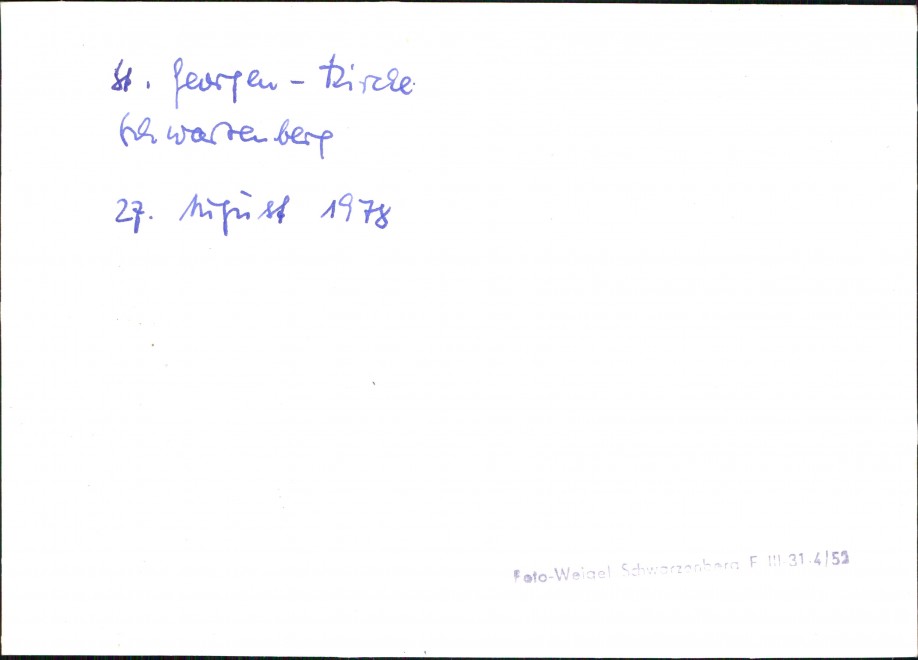 St. Georgen-Kirche
Schwarzenberg
27. August 1978
Foto-Weigel Schwarzenberg F III-31-4/52